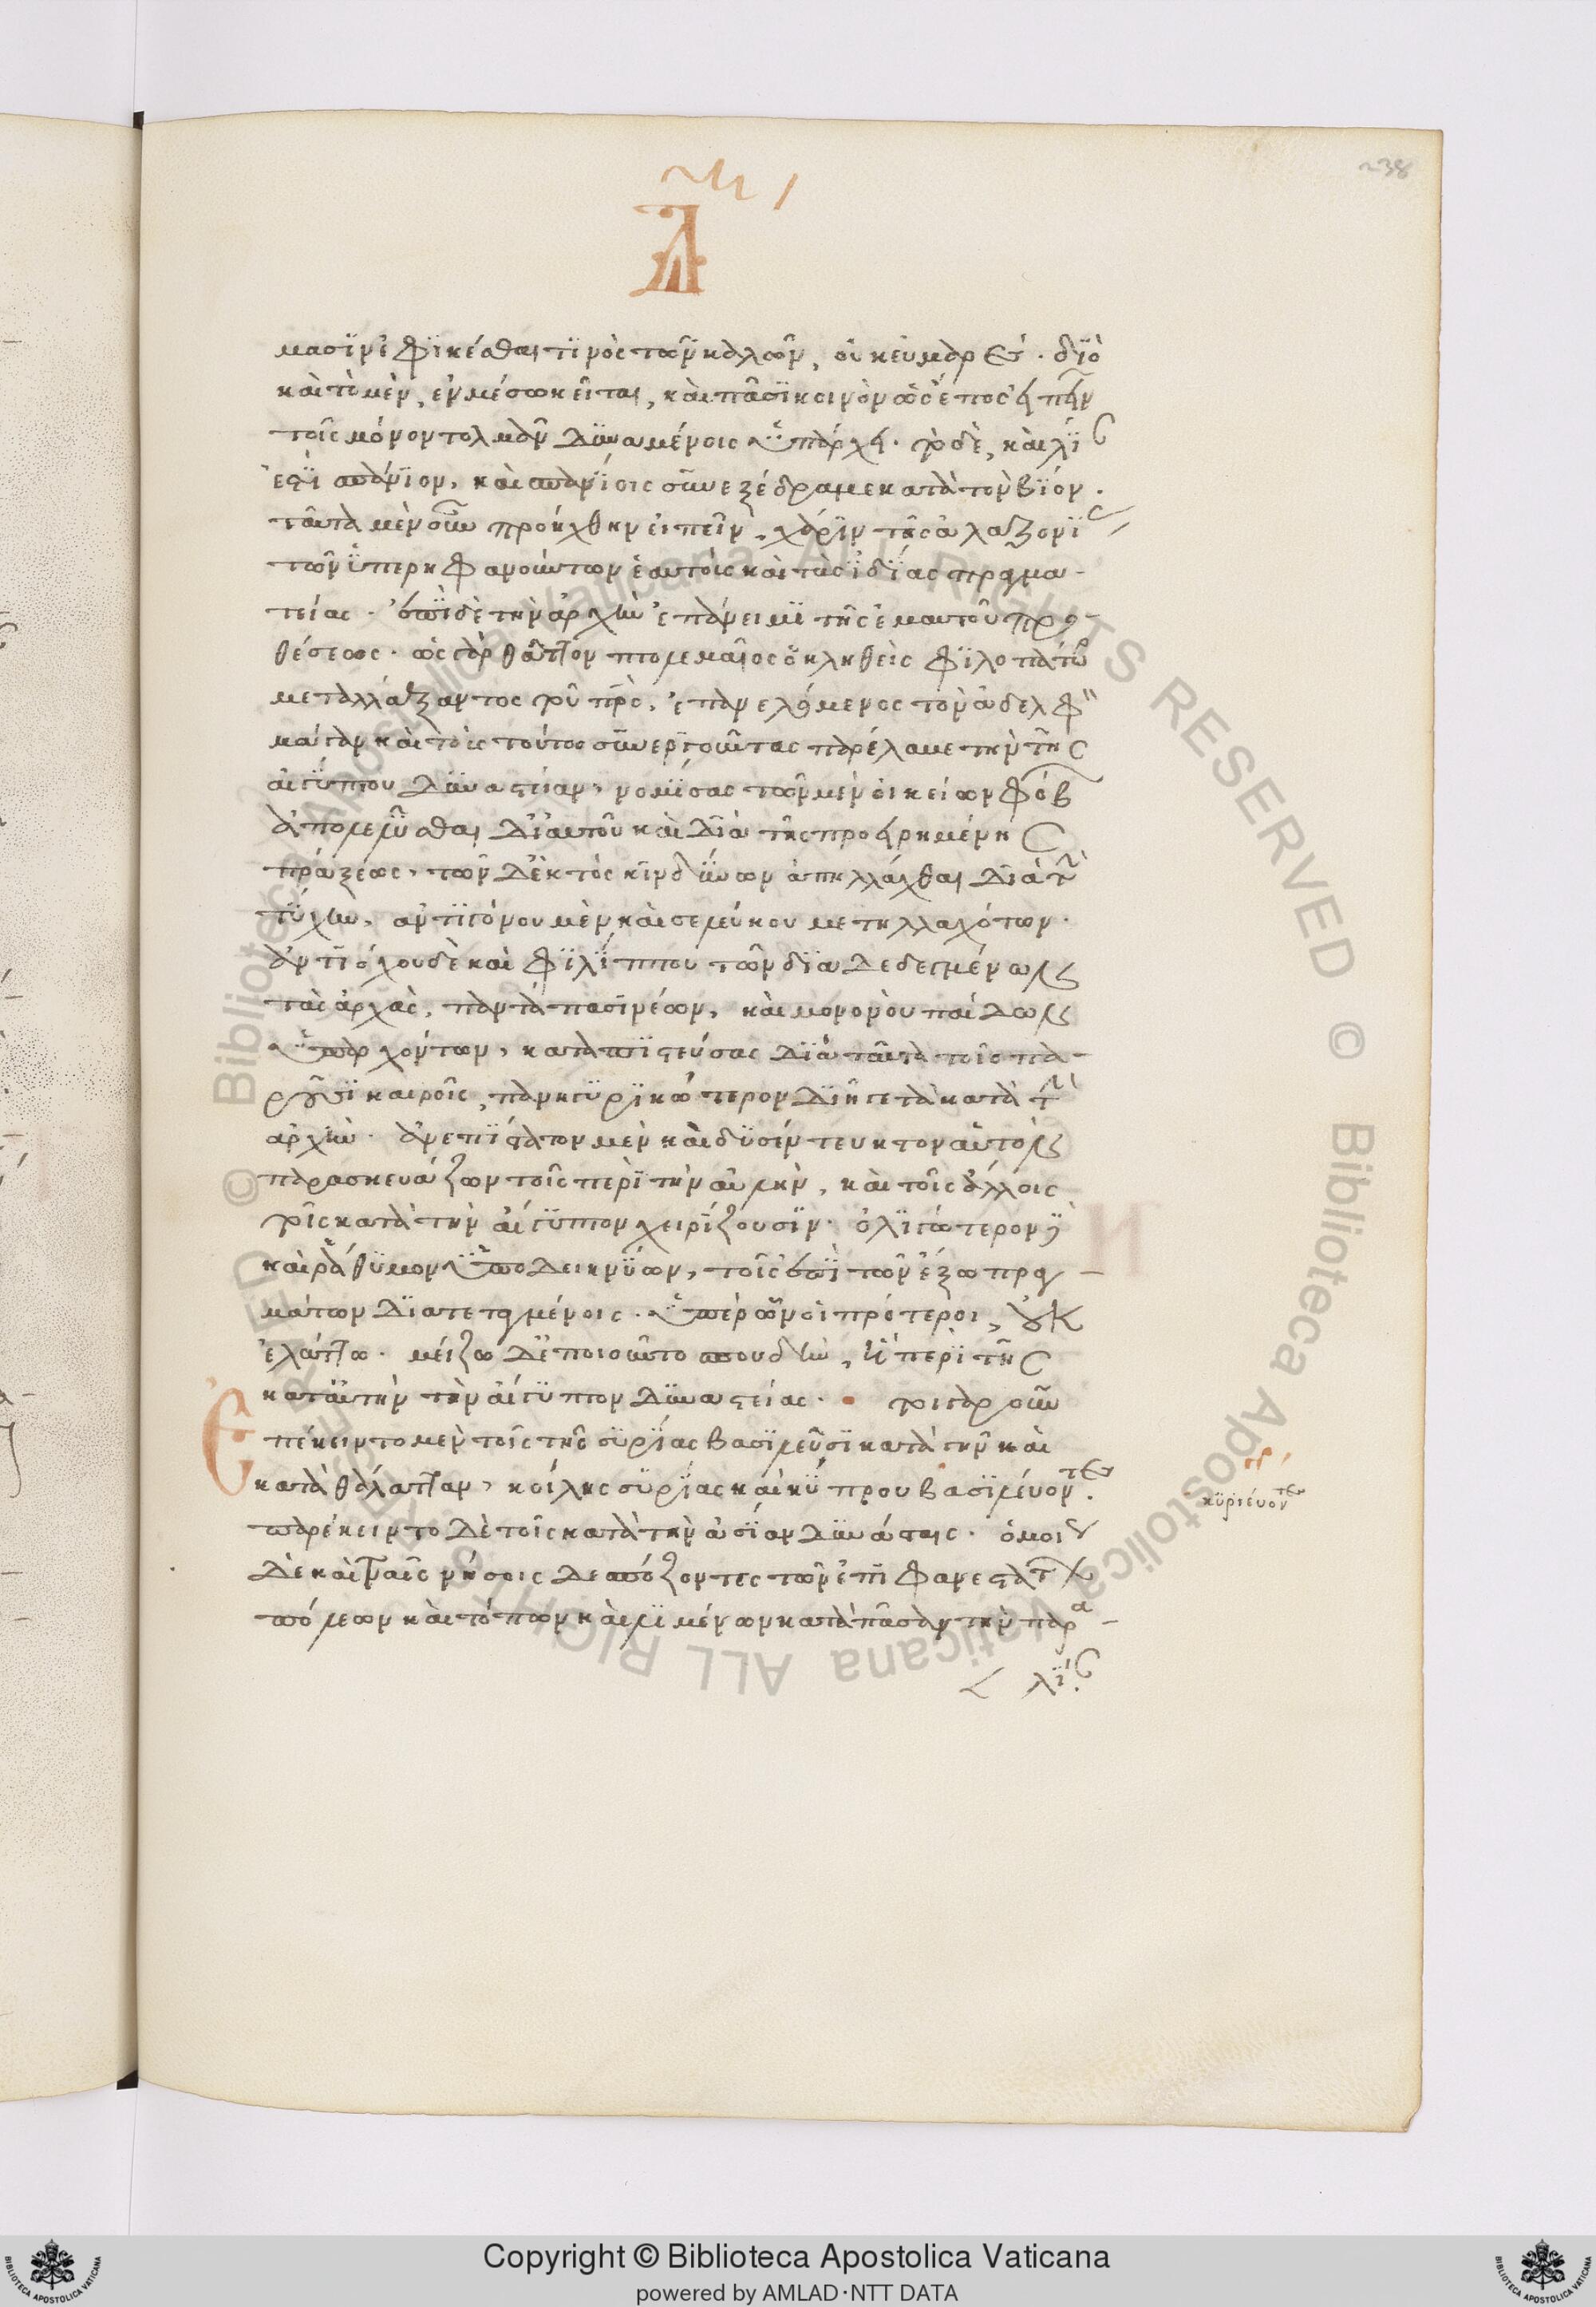 238
μασϊν ἐφϊκέσθαι τϊνὸς τῶν καλῶν, οὐκ εὐμαρές. δϊὸ
καὶ τὸ μὲν, ἐν μέσω κεῖται, καὶ πᾶσϊ κοινὸν ὡς ἔπος ειπειν
τοῖς μόνον τολμᾶν δϋναμένοις ὑπάρχει. τὸ δὲ, καὶ λί
ἐστϊ σπάνϊον, καὶ σπανϊοις συνεξέδραμε κατὰ τὸν βϊον.
ταῦτα μὲν οὖν προήχθην εἰπεῖν, χάρϊν τῆς ἀλαζονϊ
τῶν ὑπερηφανούντων ἑαυτοὺς καὶ τὰς ϊδϊας πραγμα-
τείας. ἐπὶ δὲ τὴν ἀρχὴν ἐπάνειμϊ τῆς ἐμαυτοῦ προ-
θέσεως. ὡς γὰρ θᾶττον πτολεμαῖος ὁ κληθεὶς φϊλοπάτωρ
μεταλλάξαντος τοῦ πρς, ἐπανελόμενος τὸν ἀδελφ
μάγαν καὶ τοὺς τούτω συνεργοῦντας παρέλαβε τὴν τῆς
αἰγύπτου δϋναστείαν, νομϊσας τῶν μὲν οἰκείων φόβ
ἀπολελῦσθαι δι' αὐτοῦ καὶ δϊὰ τῆς προειρημένης
πράξεως, τῶν δ' ἐκτὸς κινδϋνων ἀπηλλάχθαι δϊὰ τ
τϋχην, ἀντϊγόνου μὲν καὶ σελεύκου μετηλλαχότων.
ἀντϊόχου δὲ καὶ φϊλϊππου τῶν δϊαδεδεγμένων
τὰς ἀρχὰς, παντάπασϊ νέων, καὶ μονονοὺ παίδων
ὑπαρχόντων, καταπϊστεύσας δϊὰ ταῦτα τοῖς πα-
ροῦσϊ καιροῖς, πανηγϋρϊκώτερον δϊῆγε τὰ κατὰ τ
ἀρχὴν. ἀνεπϊστατον μὲν καὶ δϋσέντευκτον αὑτὸν
παρασκευάζων τοῖς περὶ τὴν αὐλὴν, καὶ τοῖς ἄλλοις
τοῖς κατὰ τὴν αἴγϋπτον χειρϊζουσϊν. ὀλϊγώτερον
καὶ ῥάθϋμον ὑποδεικνϋων, τοῖς ἐπὶ τῶν ἔξω πραγ-
μάτων δϊατεταγμένοις. ὑπὲρ ὧν οἱ πρότεροι, οὐκ
ἐλάττω. μείζω δ' ἐποιοῦντο σπουδὴν, ἢ περὶ τῆς
κατ' αὐτὴν τὴν αἴγϋπτον δϋναστείας. τοιγὰρ οῦν
Επέκειντο μὲν τοῖς τῆς σϋρϊας βασϊλεῦσϊ κατὰ γῆν καὶ
κατὰ θάλατταν, κοίλης σϋρϊας καὶ κϋπρου βασϊλέυοντες.
παρέκειντο δὲ τοῖς κατὰ τὴν ἀσϊαν δϋνάσταις. ὁμου
κϋριέυοντες
δὲ καὶ ταῖς νήσοις δεσπόζοντες τῶν ἐπιφανεστάτ
πόλεων καὶ τόπων καὶ λϊμένων κατὰ πᾶσαν τὴν παρα-
λϊ